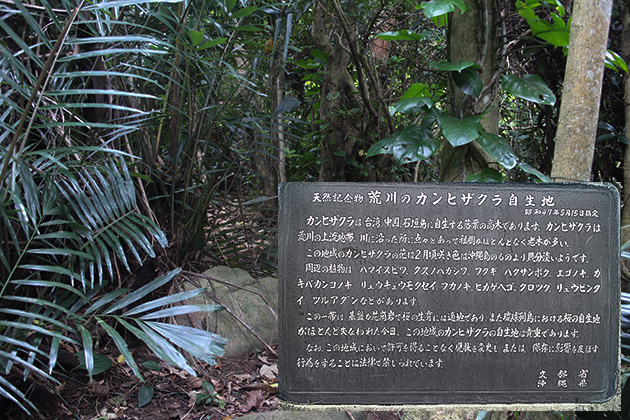 天然記念物 荒川のカンヒザクラ自生地
昭和47年5月15日指定
カンヒザクラは台湾、中国、石垣島に自生する落葉の高木であります。カンヒザクラは
荒川の上流地帯、川に沿った所に点々とあって稚樹がほとんどなく老木が多い。
この地域のカンヒザクラの花は2月頃咲き色は沖縄島のものより幾分淡いようです。
周辺の植物は、ハマイヌビワ、クスノハカシワ、フクギ、ハクサンボク、エゴノキ、カ
キバカンコノキ、リュウキュウモクセイ、フカノキ、ヒカゲヘゴ、クロツグ、リュウビンタ
イ、ツルアダンなどがあります。
この一帯は、基盤が花崗岩で桜の生育には適地であり、また琉球列島における桜の自生地
がほとんど失なわれた今日、この地域のカンヒザクラの自生地は貴重であります。
なお、この地域において許可を得ることなく現状を変更し、または、保存に影響を及ぼす
行為をすることは法律で禁じられています。
文部省
沖縄県